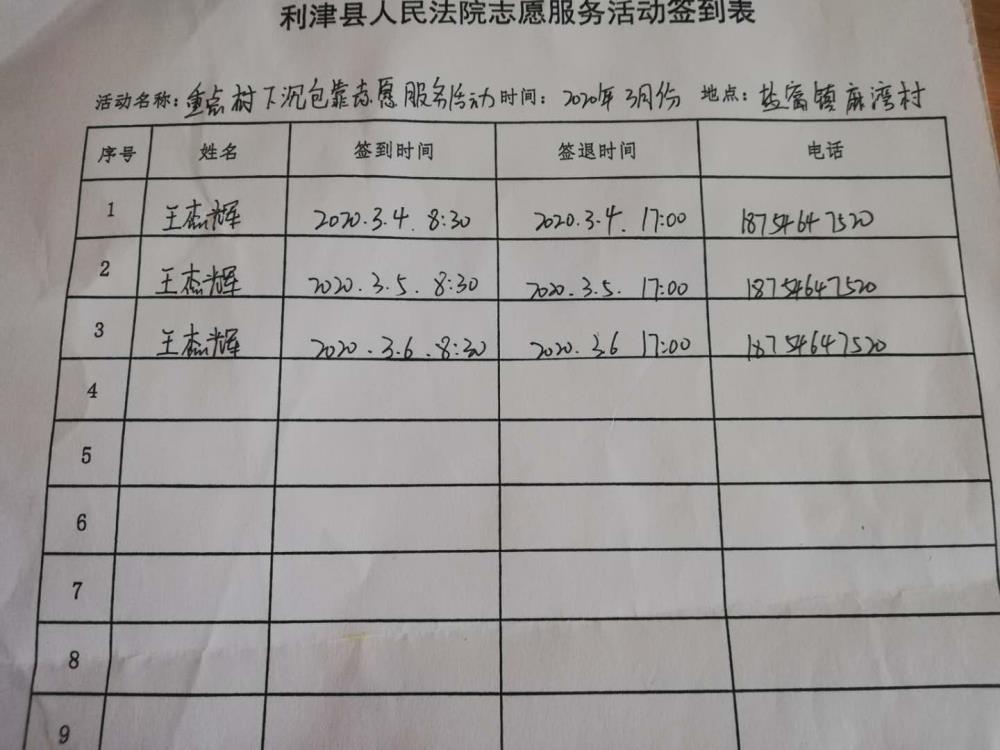 利津县人民法院志愿服务活动签到表
活动名称：重点村下沉包靠志愿服务活动 时间：2020年3月份 地点：盐窝镇麻湾村
序号 姓名 签到时间 签退时间 电话
1 王杰辉 2020.3.4. 8:30 2020.3.4. 17:00 18754647520
2 王杰辉 2020.3.5. 8:30 2020.3.5. 17:00 18754647520
3 王杰辉 2020.3.6.8:30 2020.3.6 17:00 18754647520
4
5
6
7
8
9